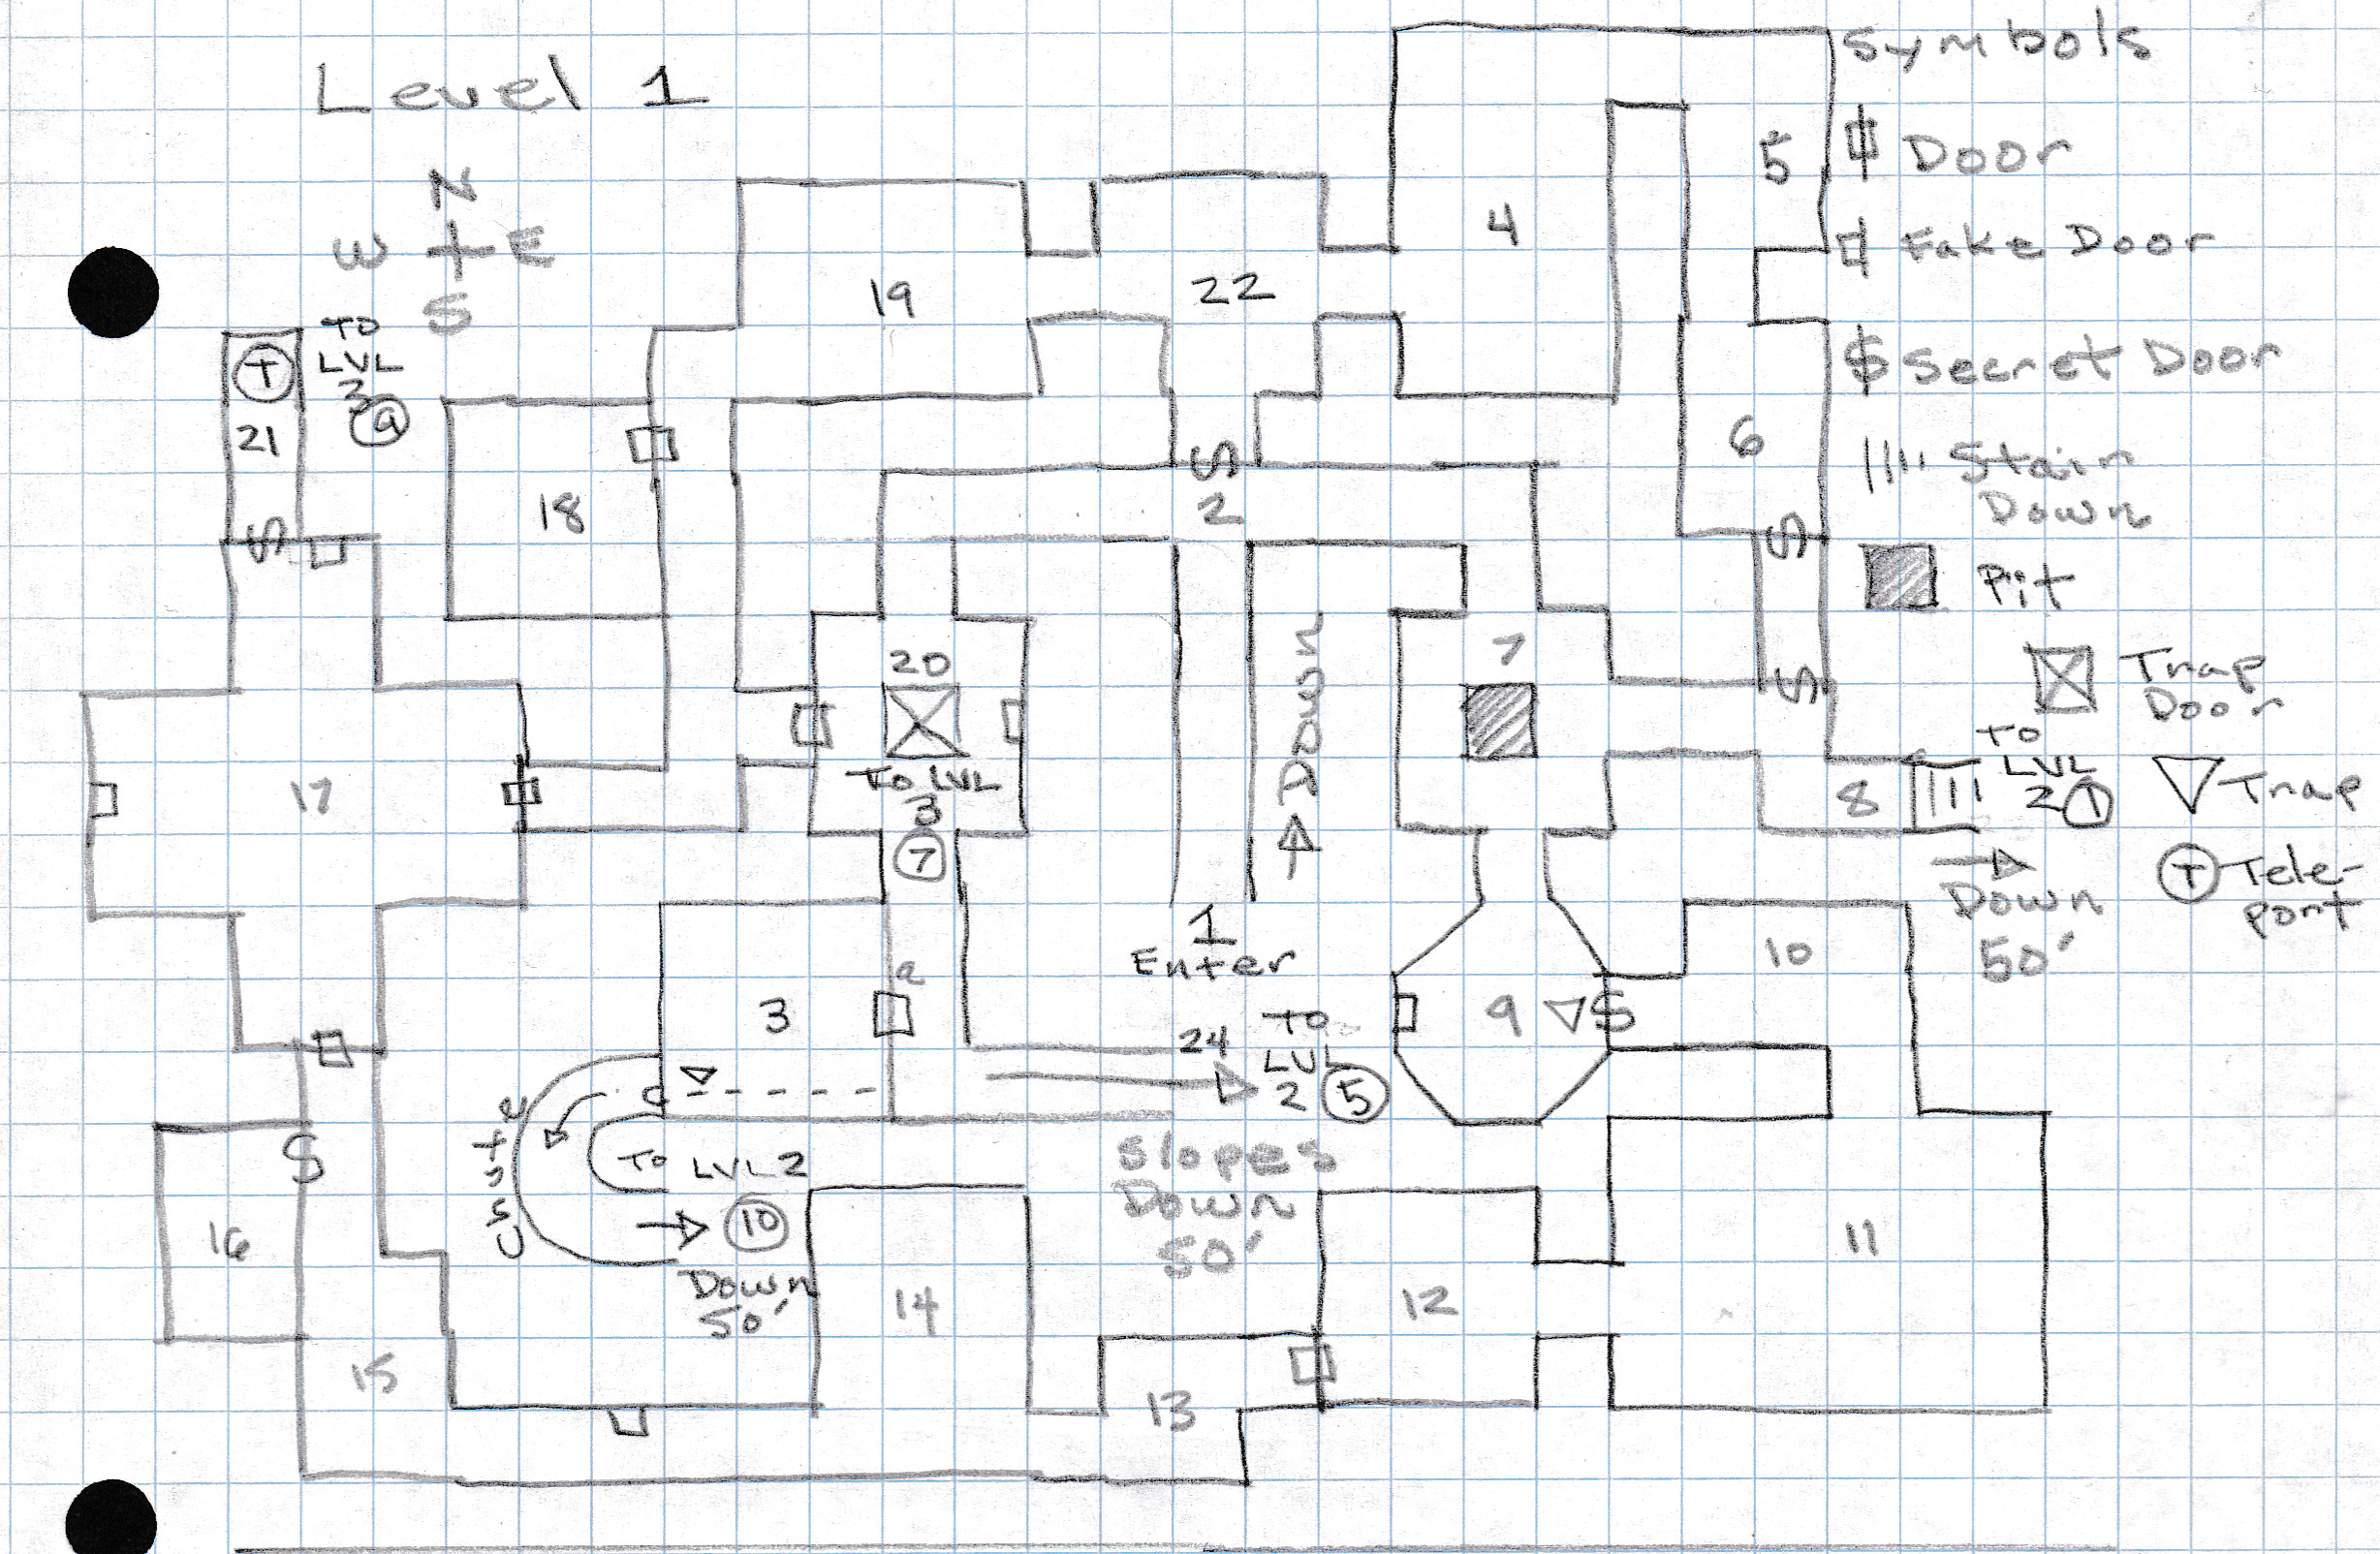 Level 1
N
W E
S
Symbols
Door
Fake Door
$ Secret Door
Stair
Down
Pit
Trap
Door
Trap
T Tele-
port
TO
LVL
3
9
T
21
19
22
4
5
6
S
2
18
S
S
S
20
TO LVL
3
7
Down
7
17
8
TO
LVL
2 1
Down
50'
1
Enter
2
3
24
TO
LVL
2 5
9 S
10
C
Chute
TO LVL 2
10
Down
50'
Slopes
Down
50'
S
16
15
14
13
12
11